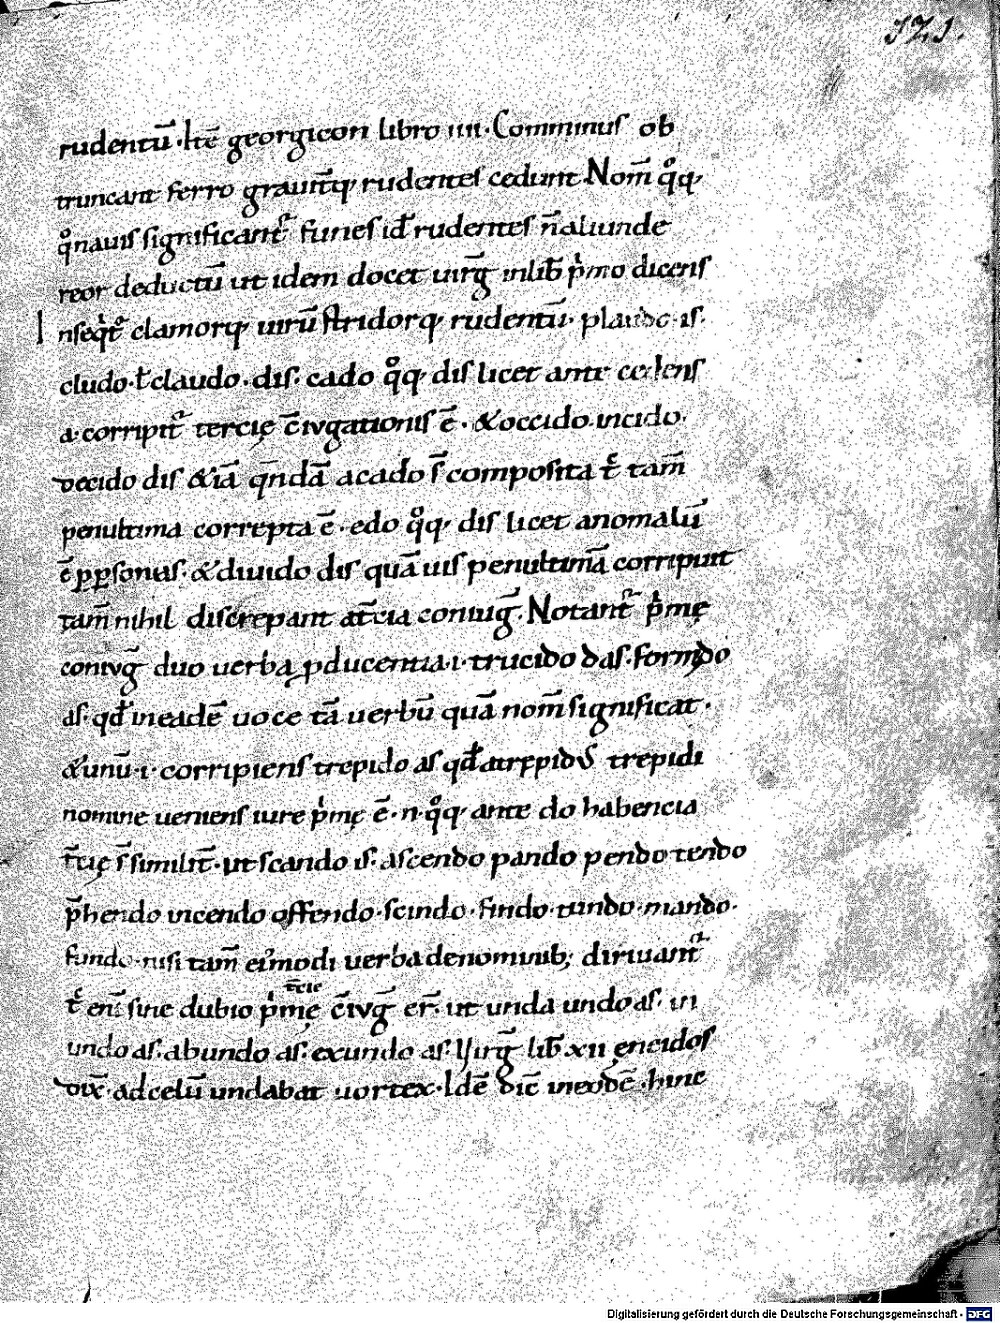 321.
rudentū· Itē georgicon libro IIII· Comminus ob
truncant ferro grauit̄ꝗ rudentes cedunt Nom̄ qͦꝗ
qͦ nauis significant᷑ funes id᷑ rudentes n̄ aliunde
reor deductū ut idem docet uirḡ in lib̄ pͥmo dicens
Inseqͥtͦ clamorꝗ uirū stridorꝗ rudentū· plaudo· is·
cludo· t̄ claudo· dis· cado qͦꝗ dis licet ante cedens
a· corripit᷑ tercię c̄iugationis ē· &occido incido
decido dis &iā qn̄dā a cado s̄ composita t̄ tam̄
penultima correpta ē· edo qͦꝗ dis licet anomalū
ē p̱p̱sonas· &diuido dis quāuis penultimā corripiunt
tam̄ nihil discrepant a t̄cia coniuḡ· Notant᷑ pͥmę
coniuḡ duo uerba ꝓducentia·i· trucido das· formido
as· qd̄ in eadē uoce tā uerbū quā nom̄ significat·
&unū·i· corripiens trepido as qd̄ a trepidus trepidi
nomine ueniens iure pͥmę ē·n·qͦꝗ ante do habencia
t̄cię s̄ similit̄· ut scando is· ascendo pando pendo tendo
p̄hendo incendo offendo· scindo· findo· tundo· mando·
fundo· nisi tam̄ eiꝰmodi uerba denominib; diriuant᷑
t̄cię
t̄ eni̅ sine dubio pͥmę c̄iuḡ er̄· ut unda undo as· in
undo as· abundo as· exundo as· Uirḡ lib̄ XII ęneidos
dix̄· ad celū undabat uortex· Idē dic̄ in eodē· hinc
Digitalisierung gefördert durch die Deutsche Forschungsgemeinschaft - DFG